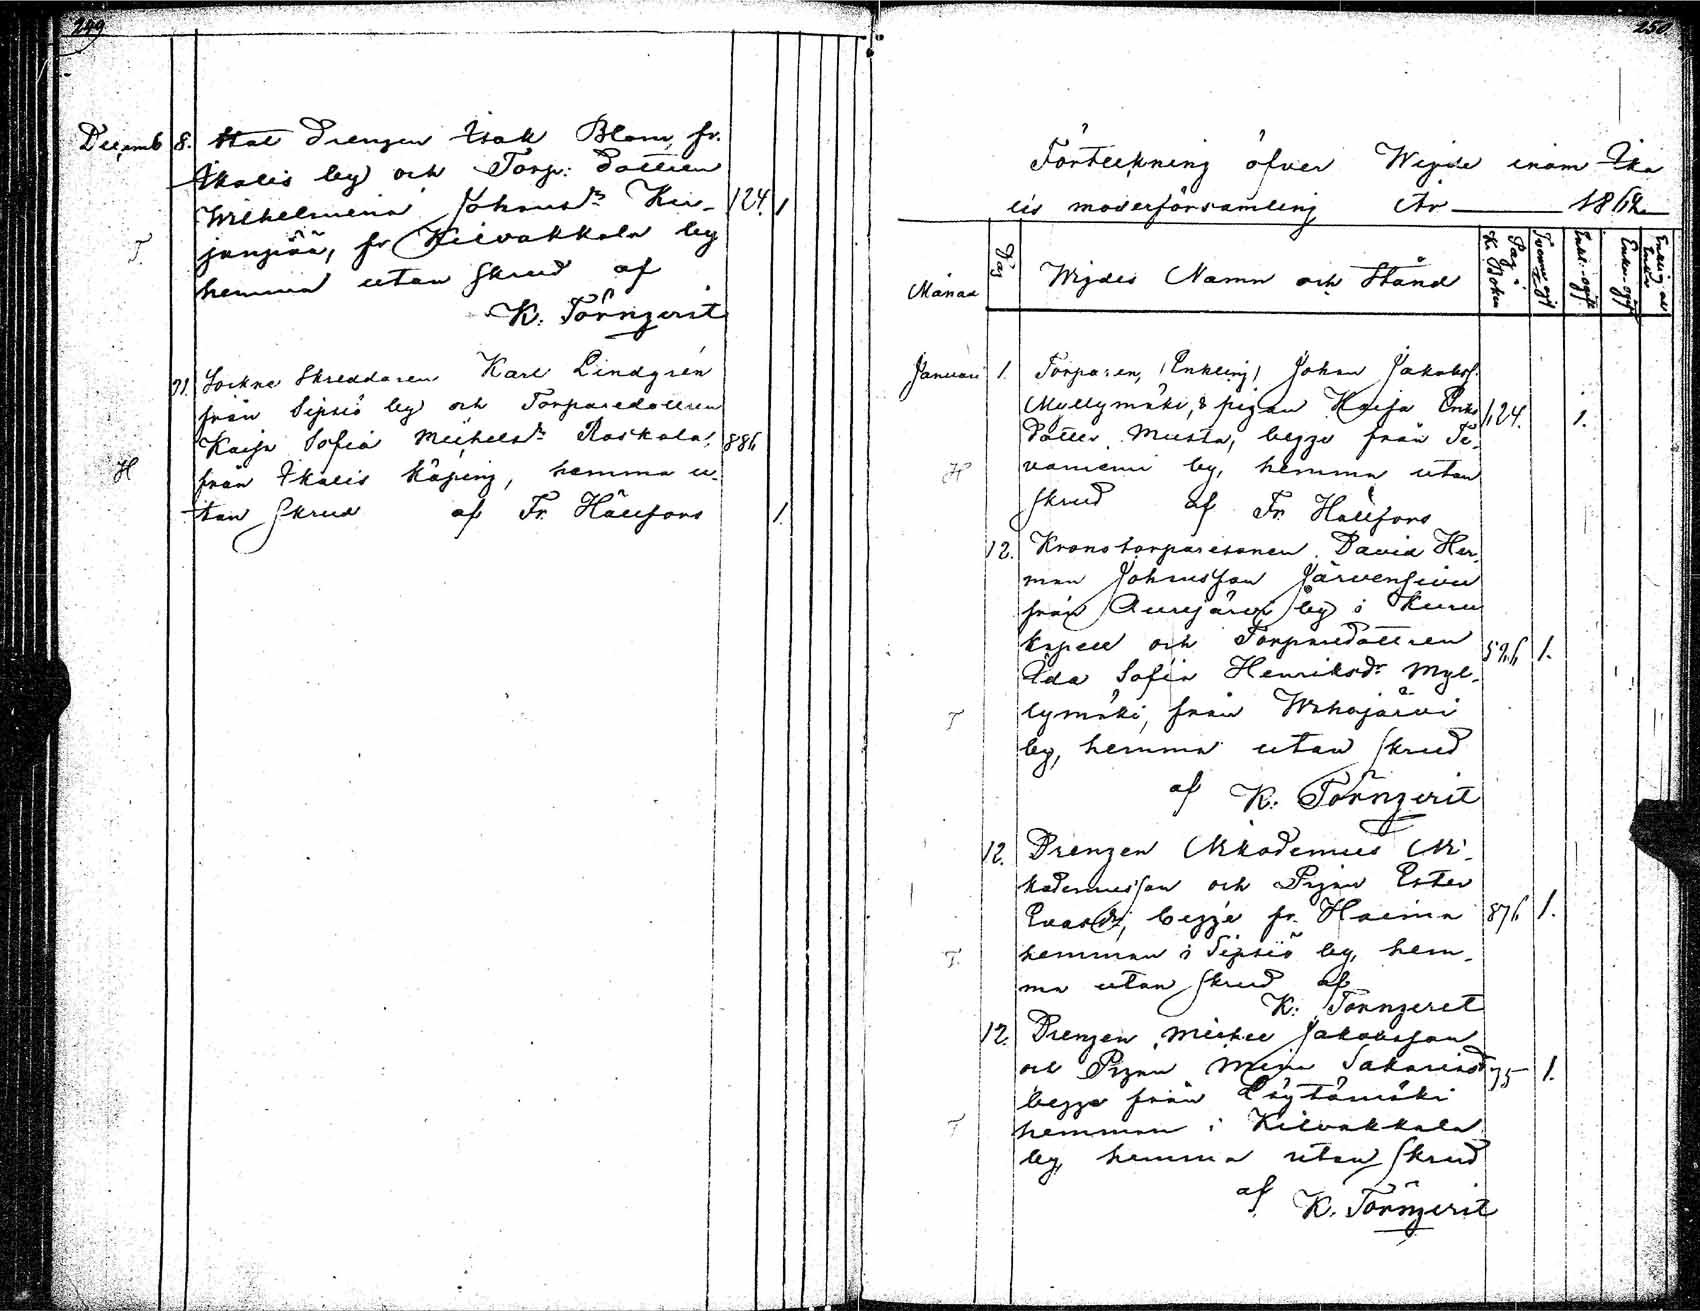 249
Decemb 8. Stat Drengen Isak Blom, fr.
Ikalis by och Torp: dottren
Wilhelmina Johansdr Kir- 124. 1
T janpää, fr Kilvakkala by
hemma utan skrud af
K. Törnqvist
21. Sockne Skreddaren Karl Lindgrén
från Sipsiö by och Torparedottren
Kajsa Sofia Michelsdr Raskala, 886
H från Ikalis Köping, hemma u-
tan Skrud af Fr. Hällfors 1.
250.
Förteckning öfver Wigde inom Ika
lis moderförsamling År 1862
Månad Dag Wigdes Namn och Stånd Pag. i K. Boken
Januari 1. Torparen, (Enkling) Johan Jakobss.
Myllymäki, & pigan Kajsa Eriks
dotter Musta, begge från Te- 124. 1.
H vaniemi by, hemma utan
Skrud af Fr. Hällfors
12. Kronotorparesonen David Her-
man Johansson Järvensivu
från Aurejärvi by i Kuru
kapell och Torparedottren 526 1.
Ida Sofia Henriksdr Myl-
T lymäki, från Wahojärvi
by, hemma utan Skrud
af K. Törnqvist
12. Drengen Nikodemus Ni-
kodemusson och Pigan Ester
Evasdr, begge fr. Haima 876 1.
T. hemman i Sipsiö by, hem-
ma utan Skrud af
K. Törnqvist
12. Drengen Michel Jakobsson
och Pigan Maria Sakariasd 75 1.
begge från Löytömäki
T hemman i Kilvakkala
by, hemma utan Skrud
af K. Törnqvist